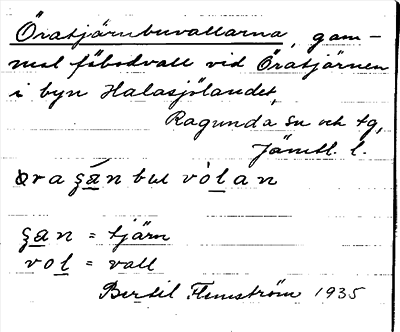 Öratjärnbuvallarna, gam-
mal fäbodvall vid Öratjärnen
i byn Halasjölandet,
Ragunda sn och tg,
Jämtl. l.
øra ʂánbuvòlan
ʂan = tjärn
vol = vall
Bertil Flemström 1935